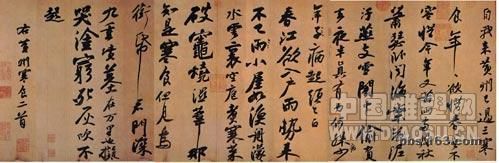 自我来黄州已過三寒
食年年欲惜春春去不
容惜今年又苦雨兩月秋
蕭瑟卧聞海棠花泥
汙燕支雪闇中偷負
去夜半真有力何殊病少
年子病起頭已白
春江欲入户雨勢来
不已雨小屋如漁舟濛濛
水雲裏空庖煑寒菜
破竈燒濕葦那
知是寒食但見烏
銜帋君門深
九重墳墓在万里也擬
哭塗窮死灰吹不
起
右黄州寒食二首